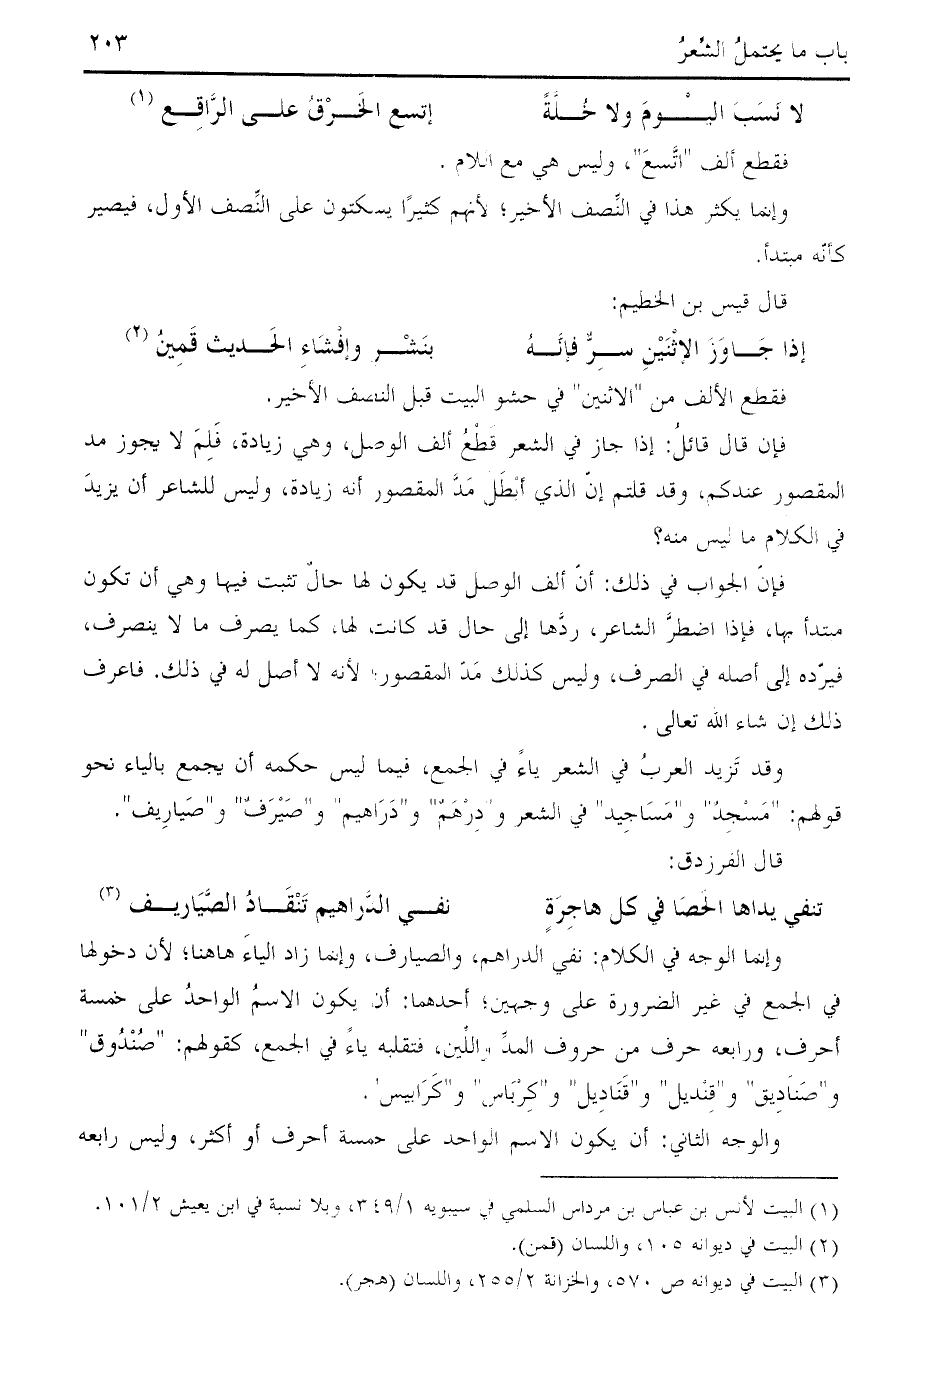 باب ما يحتملُ الشّعرُ ٢٠٣
لا نَسَبَ اليْومَ ولا خُلَّةً إتسع الخَرْقُ على الرَّاقِع (١)
فقطع ألف "اتَّسعَ"، وليس هي مع اللام .
وإنما يكثر هذا في النّصف الأخير؛ لأنهم كثيرًا يسكتون على النّصف الأول، فيصير
كأنّه مبتدأ.
قال قيس بن الخطيم:
إذا جَاوَزَ الإثْنَيْنِ سرٌّ فإنَّهُ بنَشْرٍ وإفْشَاءِ الحَديث قَمِينُ (٢)
فقطع الألف من "الاثنين" في حشو البيت قبل النصف الأخير.
فإن قال قائلُ: إذا جاز في الشعر قَطْعُ ألف الوصل، وهي زيادة، فَلِمَ لا يجوز مد
المقصور عندكم، وقد قلتم إنّ الذي أبْطَل مَدَّ المقصور أنه زيادة، وليس للشاعر أن يزيدَ
في الكلام ما ليس منه؟
فإنّ الجواب في ذلك: أنّ ألف الوصل قد يكون لها حالٌ تثبت فيها وهي أن تكون
مبتدأ بها، فإذا اضطرَّ الشاعر، ردَّها إلى حال قد كانت لها، كما يصرف ما لا ينصرف،
فيردّه إلى أصله في الصرف، وليس كذلك مَدّ المقصور؛ لأنه لا أصل له في ذلك. فاعرف
ذلك إن شاء الله تعالى .
وقد تَزيد العربُ في الشعر ياءً في الجمع، فيما ليس حكمه أن يجمع بالياء نحو
قولهم: "مَسْجِدُ" و"مَسَاجِيد" في الشعر و"دِرْهَمٌ" و"دَرَاهيم" و"صَيْرَفٌ" و"صَيارِيف".
قال الفرزدق:
تنفي يداها الحَصَا في كل هاجِرَةٍ نفي الدَّراهيم تَنْقَادُ الصَّيَاريف (٣)
وإنما الوجه في الكلام: نفي الدراهم، والصيارف، وإنما زاد الياءَ هاهنا؛ لأن دخولها
في الجمع في غير الضرورة على وجهين؛ أحدهما: أن يكون الاسمُ الواحدُ على خمسة
أحرف، ورابعه حرف من حروف المدِّ واللّين، فتقلبه ياءً في الجمع، كقولهم: "صُنْدُوق"
و"صَنَادِيق" و"قِنْديل" و"قَنَاديل" و"كِرْبَاس" و"كَرَابيس" .
والوجه الثاني: أن يكون الاسم الواحد على خمسة أحرف أو أكثر، وليس رابعه
(١) البيت لأنس بن عباس بن مرداس السلمي في سيبويه ٣٤٩/١، وبلا نسبة في ابن يعيش ١٠١/٢.
(٢) البيت في ديوانه ١٠٥، واللسان (قمن).
(٣) البيت في ديوانه ص ٥٧٠، والخزانة ٢٥٥/٢، واللسان (هجر).